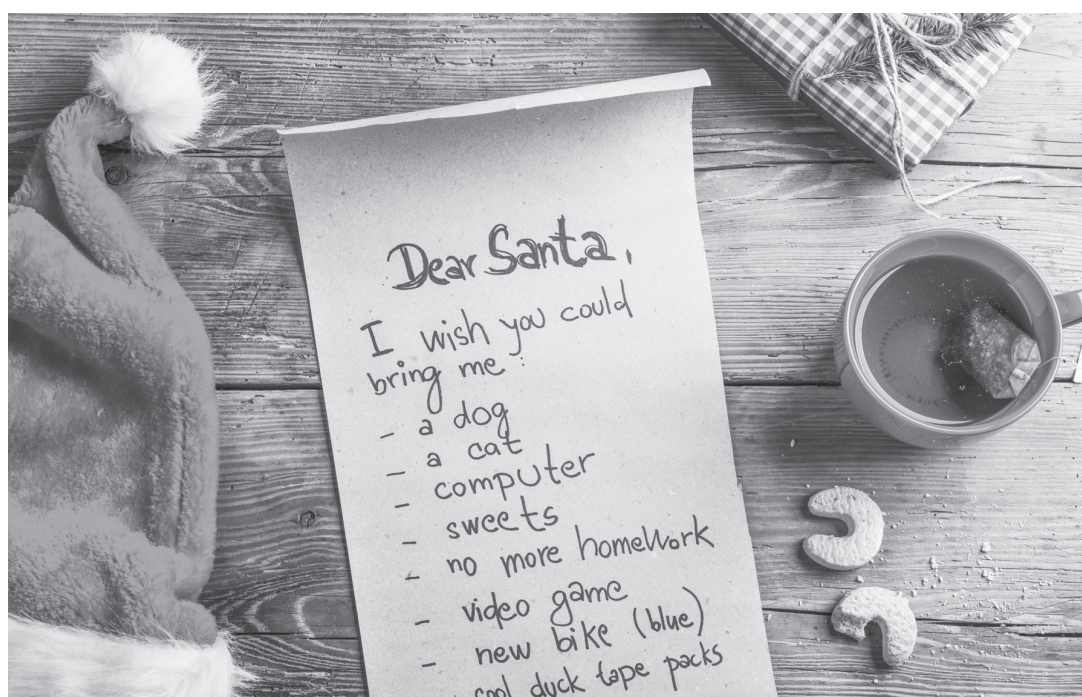 Dear Santa,
I wish you could
bring me :
- a dog
- a cat
- computer
- sweets
- no more homework
- video game
- new bike (blue)
cool duck tape packs